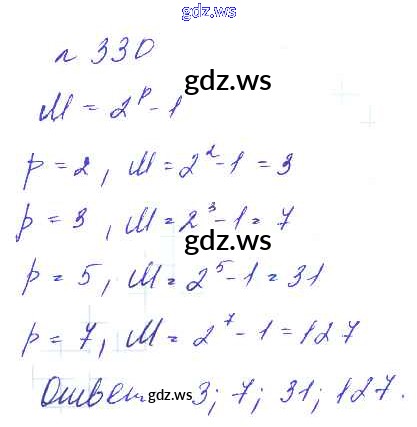 gdz.ws
n 330
gdz.ws
M = 2^p - 1
p = 2, M = 2^2 - 1 = 3
p = 3, M = 2^3 - 1 = 7
gdz.ws
p = 5, M = 2^5 - 1 = 31
p = 7, M = 2^7 - 1 = 127
Ответ gdz.ws 3; 7; 31; 127.
gdz.ws